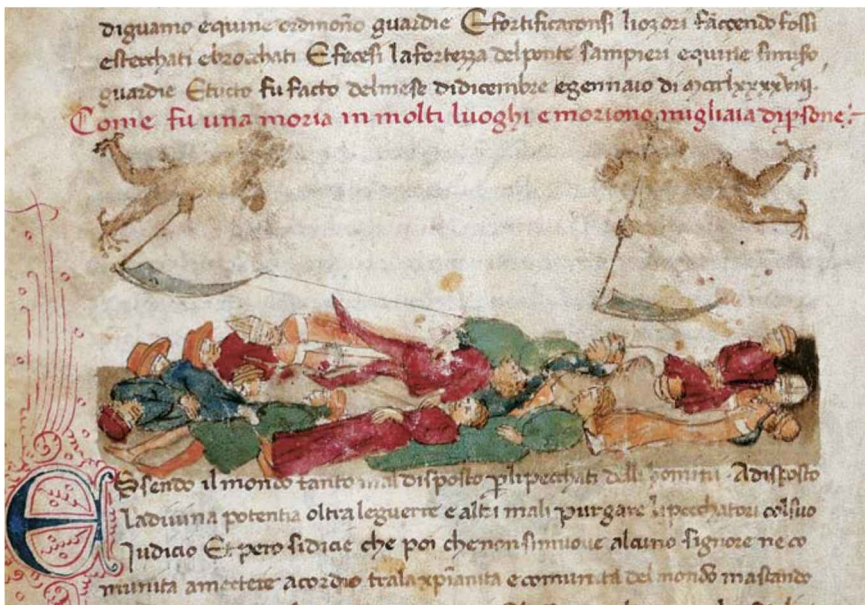 diguamo equine ordinoño guardie E fortificaronsi liozori faccendo fossi
estecchati ebrocchati E fecesi lafortezza delponte sampieri equine simiso
guardie E tucto fu facto delmese didicembre egennaio di mcclxxxxviij.
Come fu una moria in molti luoghi e moriono migliaia dipsone:
Essendo il mondo tanto mal disposto plipecchati delli homini. Adisposto
Ladivina potentia oltra leguerre e altri mali purgare li pecchatori colsuo
Judicio Et pero sidicie che poi chenonsimuove alcuno signore ne co
munita amectere acordio tralaxpianita e comunita del mondo mastando